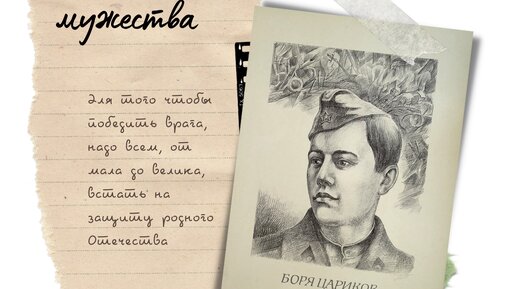 мужества
Для того чтобы
победить врага,
надо всем, от
мала до велика,
встать на
защиту родного
Отечества
БОРЯ ЦАРИКОВ